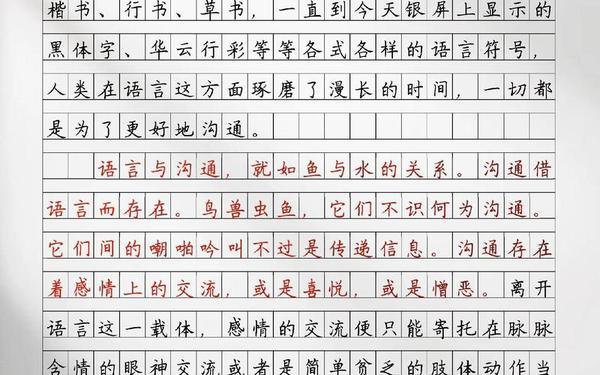 楷书、行书、草书，一直到今天银屏上显示的
黑体字、华云行彩等等各式各样的语言符号，
人类在语言这方面琢磨了漫长的时间，一切都
是为了更好地沟通。
语言与沟通，就如鱼与水的关系。沟通借
语言而存在。鸟兽虫鱼，它们不识何为沟通。
它们间的嘲啪吟叫不过是传递信息。沟通存在
着感情上的交流，或是喜悦，或是憎恶。离开
语言这一载体，感情的交流便只能寄托在脉脉
含情的眼神交流或者是简单贫乏的肢体动作当